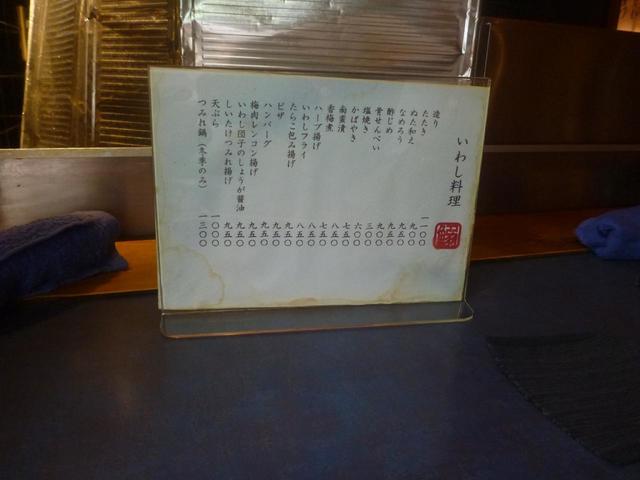 いわし料理
造り 一一〇〇
たたき 九〇〇
ぬた和え 九五〇
なめろう 九五〇
酢じめ 九〇〇
骨せんべい 三〇〇
塩焼き 六〇〇
かばやき 七五〇
南蛮漬 八五〇
香梅煮 七五〇
ハーブ揚げ 八五〇
いわしフライ 八五〇
たらこ包み揚げ 九五〇
ピザ 九五〇
ハンバーグ 九五〇
梅肉レンコン揚げ 九五〇
いわし団子のしょうが醤油 九五〇
しいたけつみれ揚げ 九五〇
天ぷら 一〇〇〇
つみれ鍋（冬季のみ） 一三〇〇